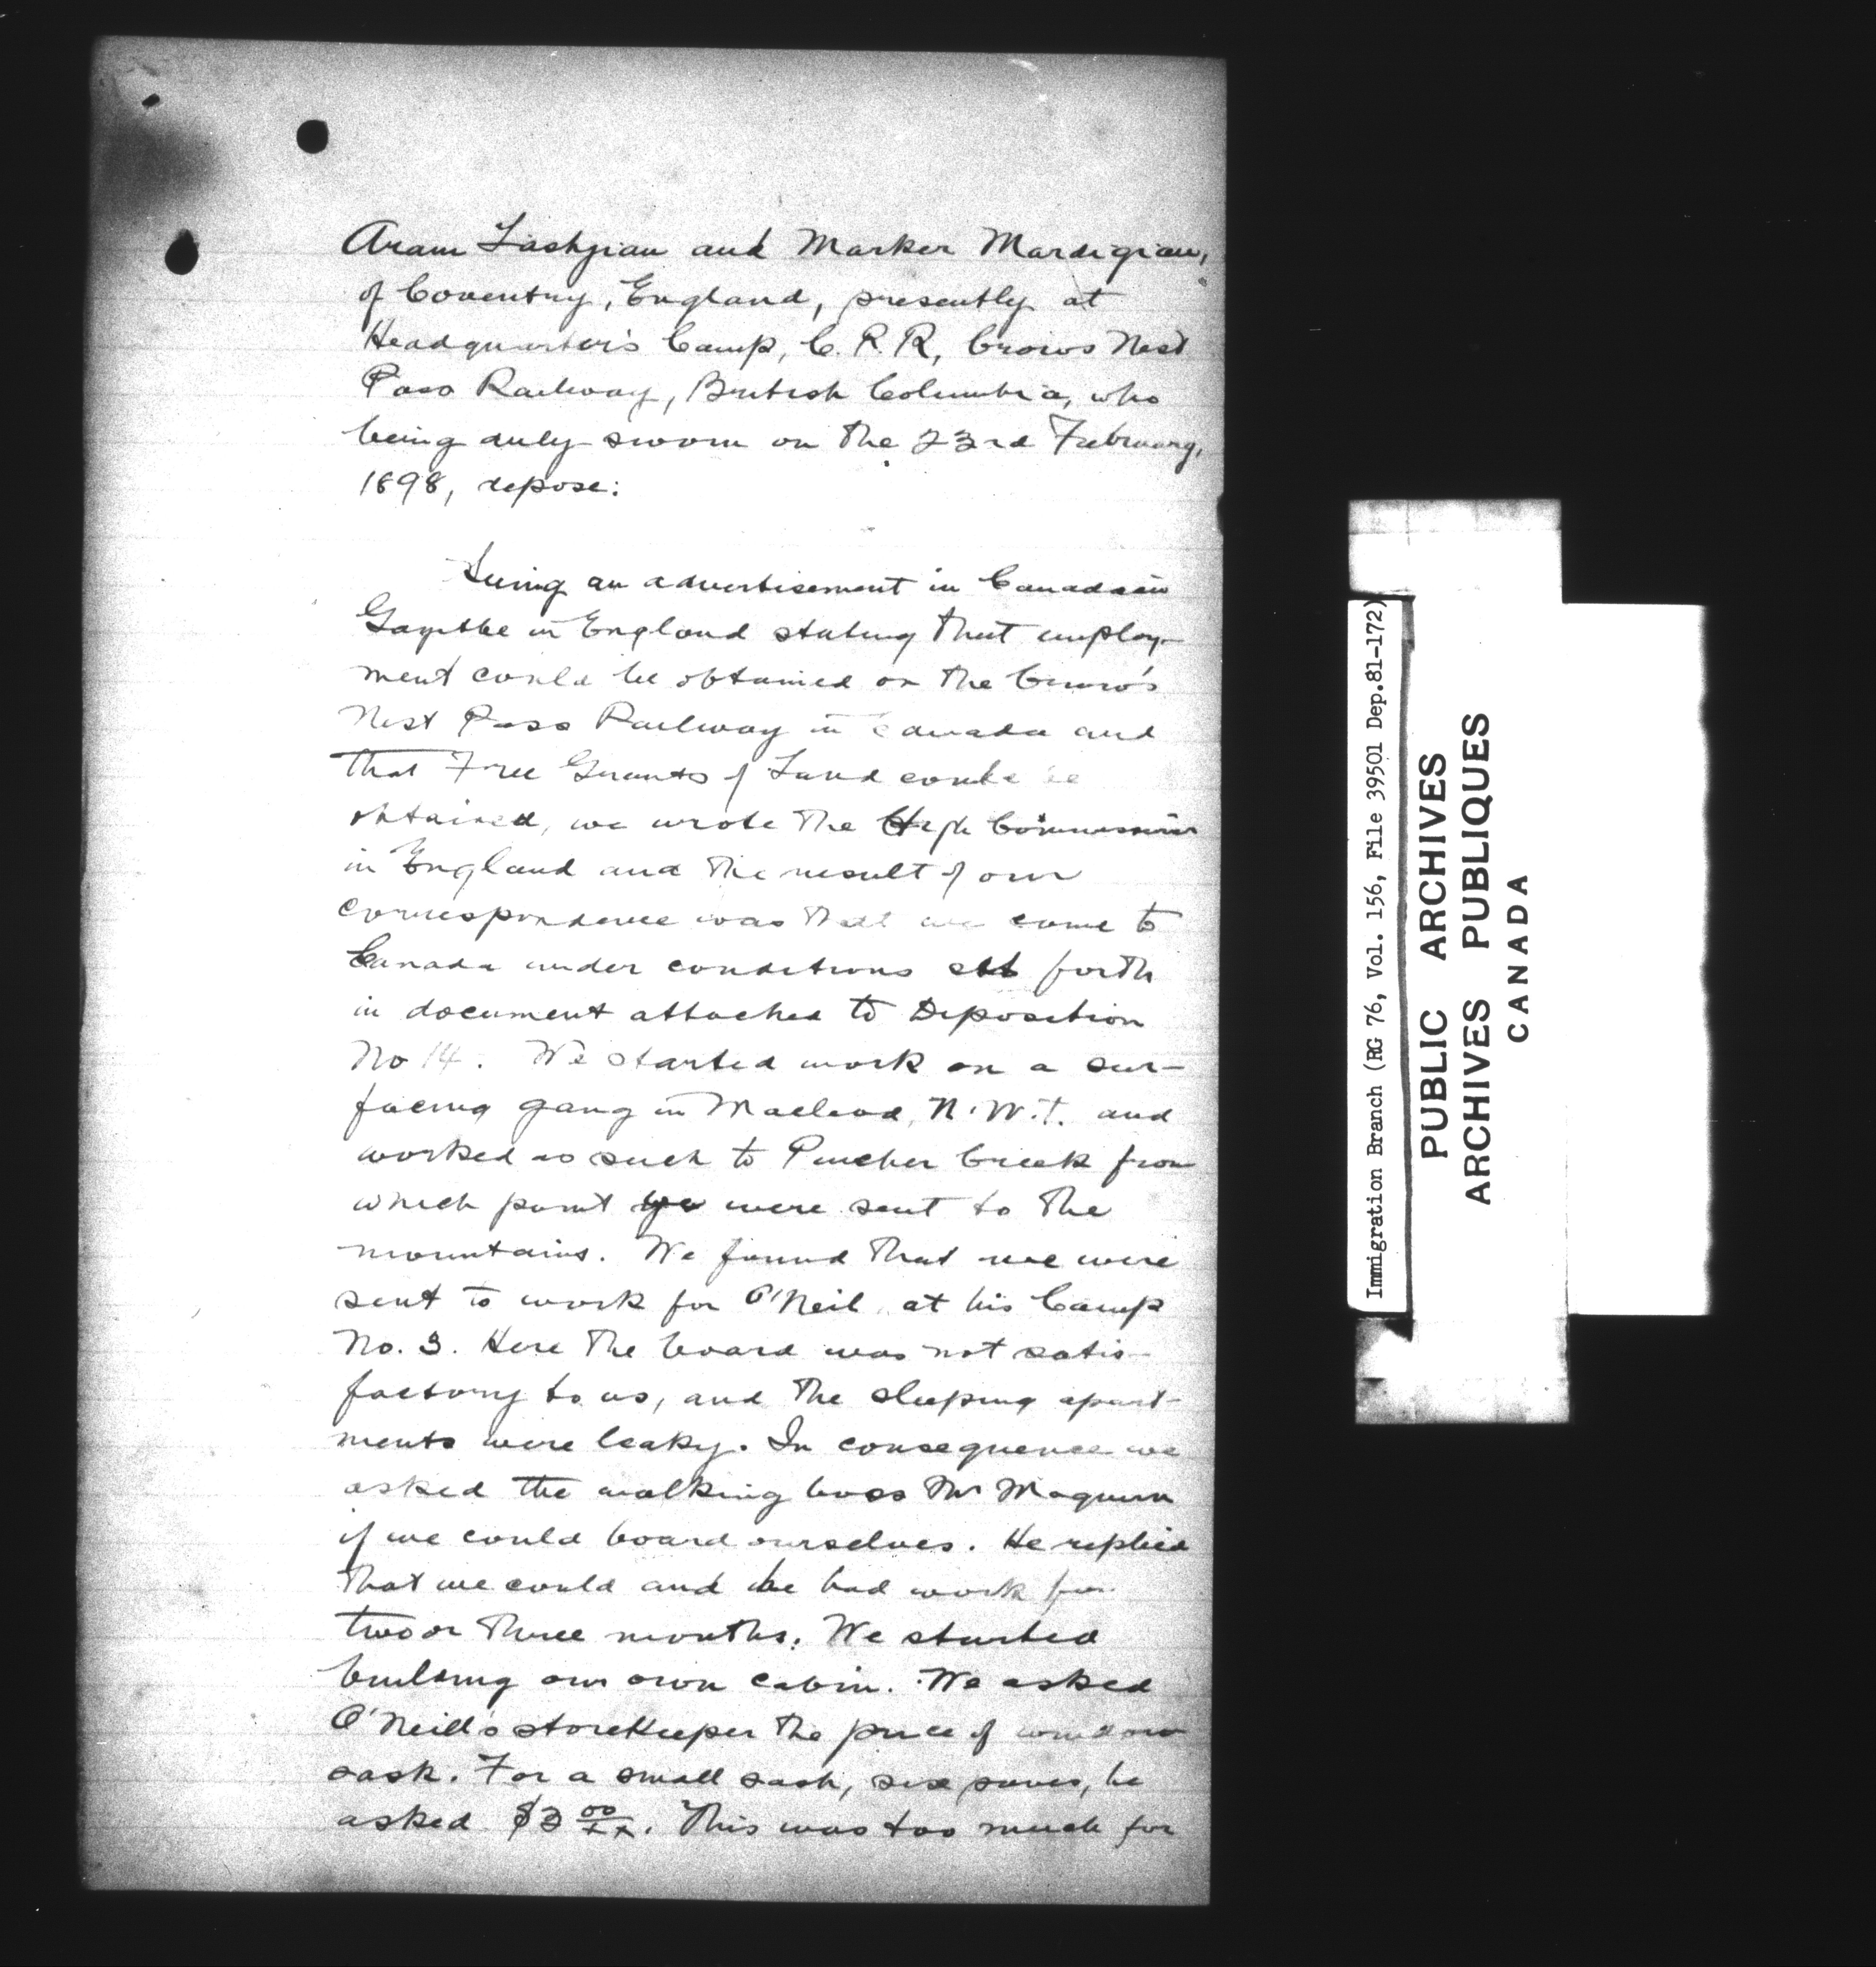 Aram Tashjian and Marker Mardigian,
of Coventry, England, presently at
Headquarter's Camp, C. P. R, Crow's Nest
Pass Railway, British Columbia, who
being duly sworn on the 23rd February,
1898, depose:
Seeing an advertisement in Canadain
Gazette in England stating that employ-
ment could be obtained on the Crow's
Nest Pass Railway in Canada and
that Free Grants of Land could be
obtained, we wrote the High Commissioner
in England and the result of our
correspondence was that we came to
Canada under conditions set forth
in document attached to Deposition
No 14. We started work on a sur-
facing gang in Macleod, N.W.T. and
worked as such to Pincher Creek from
which point we were sent to the
mountains. We found that we were
sent to work for O'Neil, at his Camp
No. 3. Here the board was not satis-
factory to us, and the sleeping apart-
ments were leaky. In consequence we
asked the walking boss Mr
if we could board ourselves. He replied
that we could and he had work for
two or three months. We started
building our own cabin. We asked
O'Neill's storekeeper the price of window
sash. For a small sash, six panes, he
asked $3 00/xx. This was too much for
Immigration Branch (RG 76, Vol. 156, File 39501 Dep.81-172)
PUBLIC ARCHIVES
ARCHIVES PUBLIQUES
CANADA